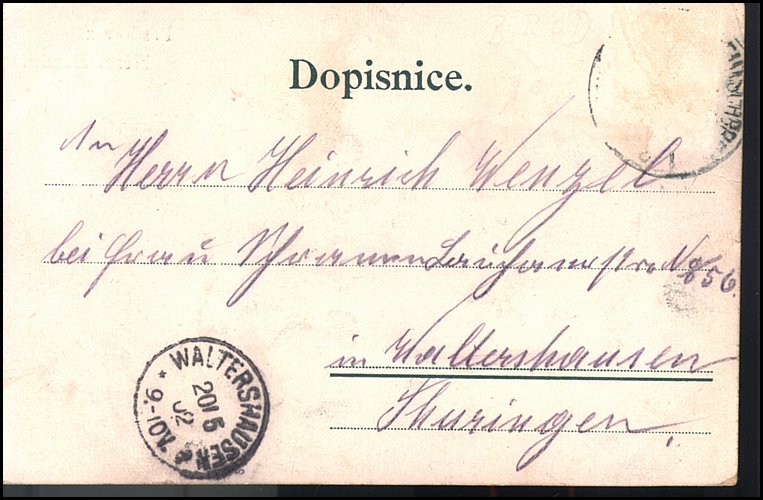 Dopisnice.
An
Herrn Heinrich Wenzel
bei Frau Schramm Lauchaerstr. No 856.
in Waltershausen
Thüringen.
WALTERSHAUSEN
20/5
02
9-10V.